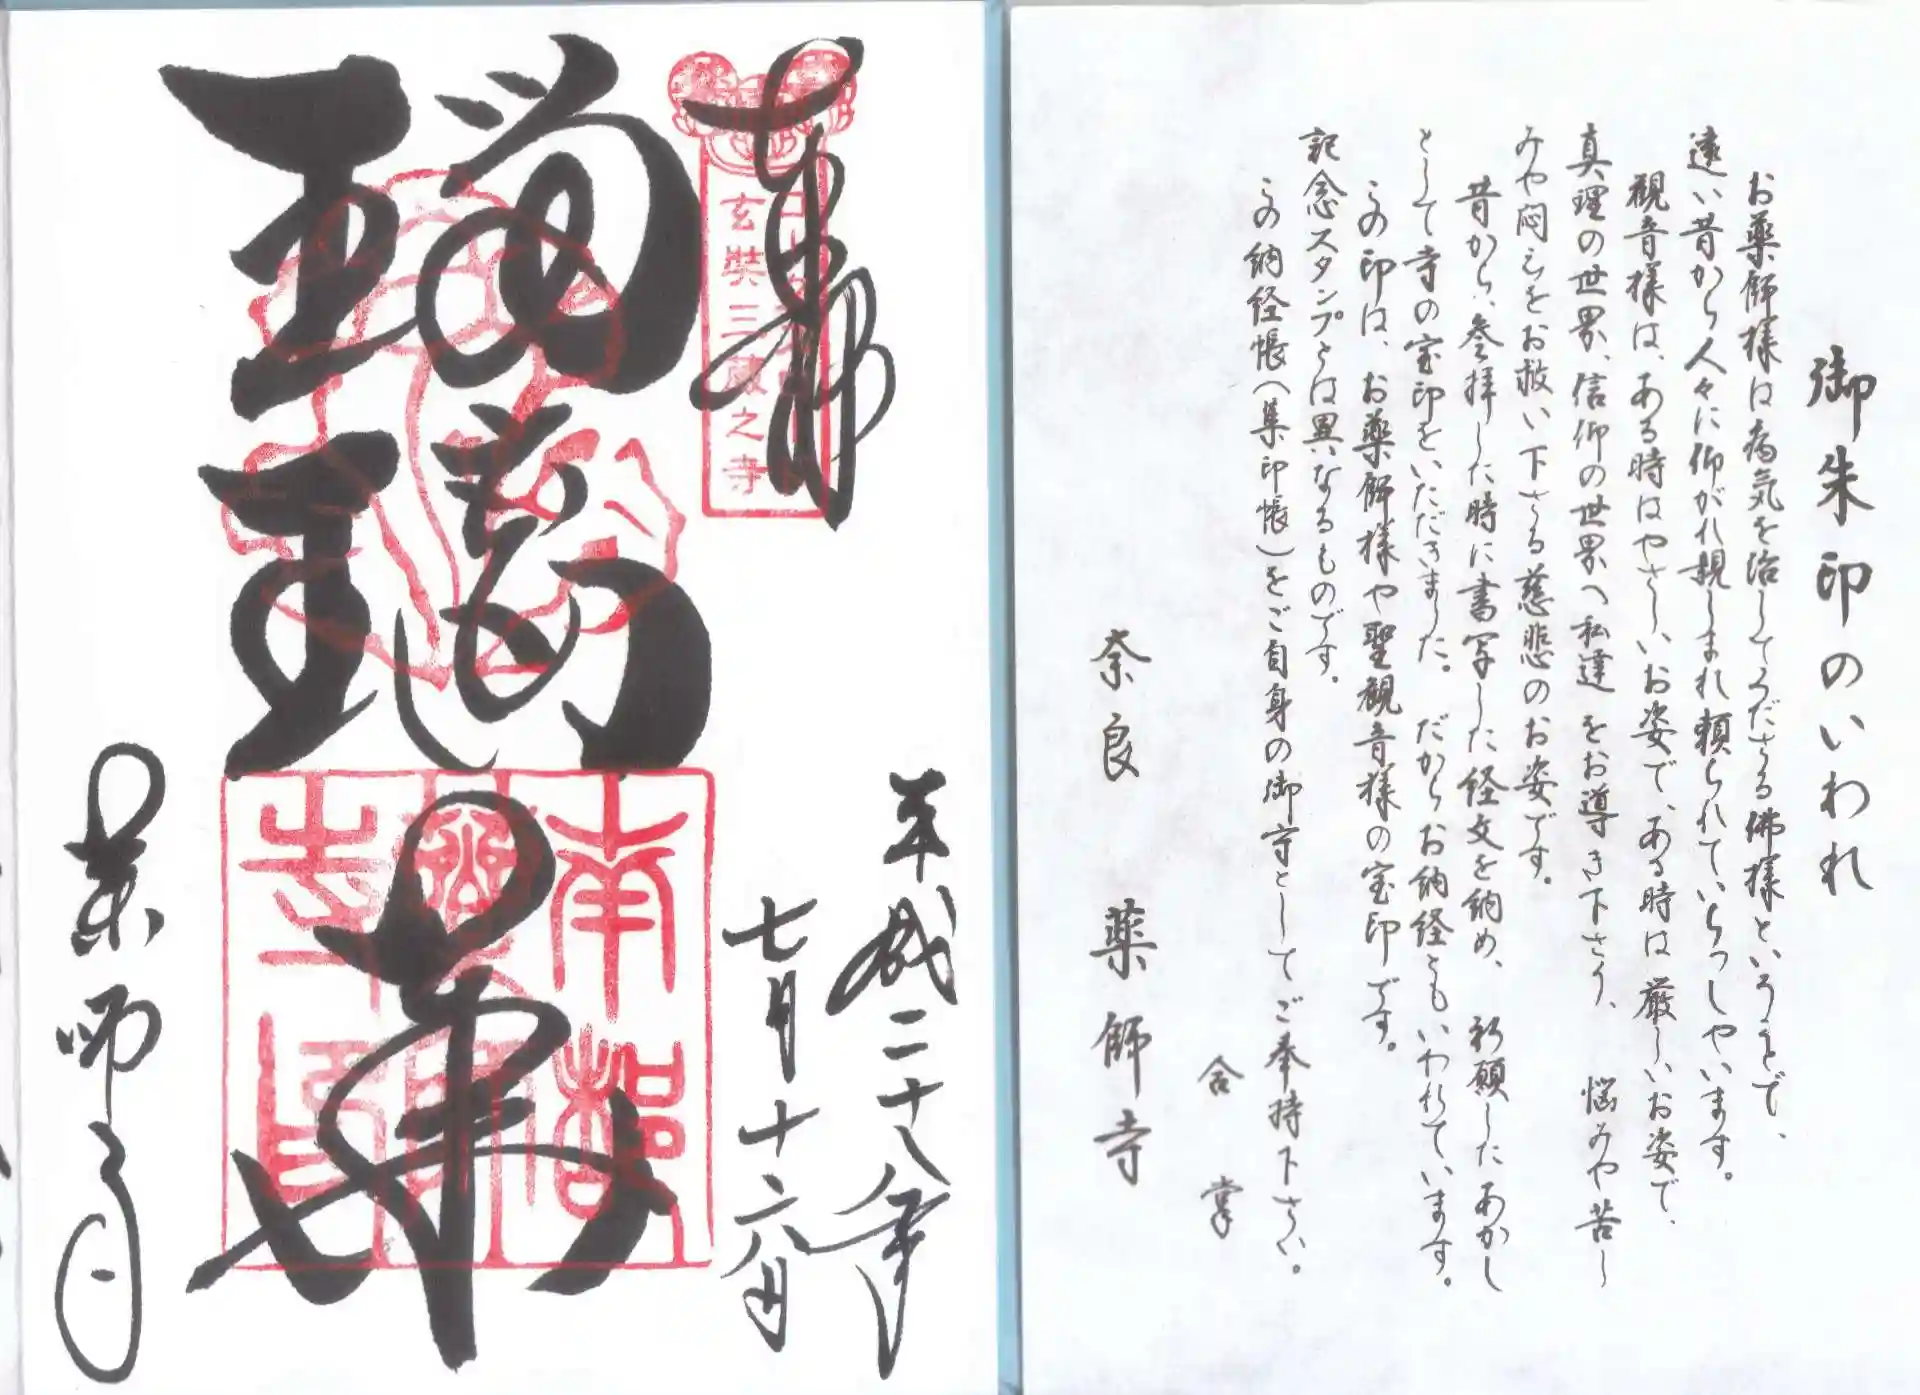 御朱印のいわれ
お薬師様は病気を治してくださる佛様ということで、
遠い昔から人々に仰がれ親しまれ頼られていらっしゃいます。
観音様は、ある時はやさしいお姿で、ある時は厳しいお姿で、
真理の世界、信仰の世界へ私達をお導き下さり、悩みや苦し
みや悶えをお救い下さる慈悲のお姿です。
昔から、参拝した時に書写した経文を納め、祈願したあかし
として寺の宝印をいただきました。だからお納経ともいわれています。
この印は、お薬師様や聖観音様の宝印です。
記念スタンプとは異なるものです。
この納経帳(集印帳)をご自身の御守としてご奉持下さい。
合掌
奈良 薬師寺
奉拝
玄奘三蔵之寺
平成二十八年
七月十六日
瑠璃華
南都
薬師寺